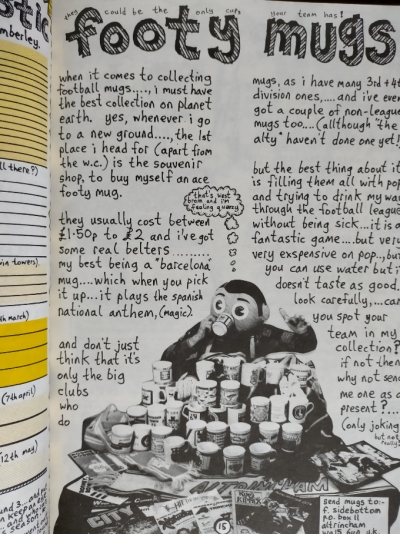 stic
mberley.
ll there?)
vin towers)
th march)
(7th april)
(12th may)
they could be the only cups your team has!
footy mugs
when it comes to collecting
football mugs...., i must have
the best collection on planet
earth. yes, whenever i go
to a new ground...., the 1st
place i head for (apart from
the w.c.) is the souvenir
shop, to buy myself an ace
footy mug.
they usually cost between
£1·50p to £2 and i've got
some real belters .........
my best being a "barcelona"
mug....which when you pick
it up...it plays the spanish
national anthem, (magic).
and don't just
think that it's
only the big
clubs
who
do
that's west
brom and i'm
feeling queasy
mugs, as i have many 3rd + 4t
division ones,.....and i've eve
got a couple of non-league
mugs too.... (although "the
alty" haven't done one yet!)
but the best thing about it
is filling them all with pop
and trying to drink my way
through the football league
without being sick....it is a
fantastic game....but very
very expensive on pop..., but
you can use water but i
doesn't taste as good.
look carefully,...can
you spot your
team in my
collection?
if not then
why not send
me one as a
present ?....
(only joking
but not
really!)
CITY
ALTRINCHAM
15
send mugs to:-
f. sidebottom
p.o. box 11
altrincham
wa15 6un u.k.